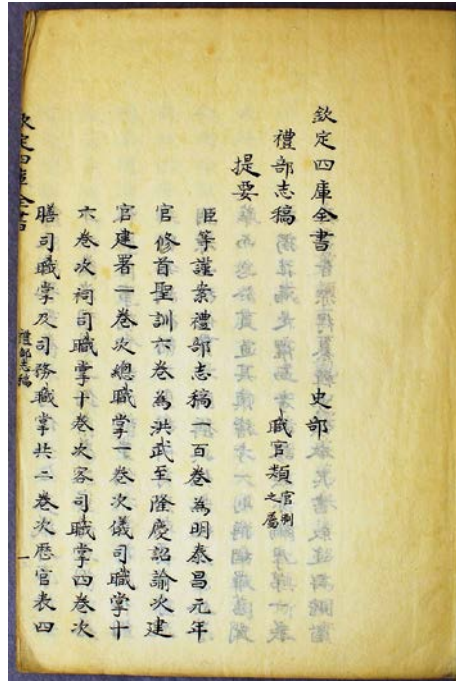 欽定四庫全書　　史部
禮部志稿　　職官類官制之屬
提要
臣等謹案禮部志稿一百卷為明泰昌元年
官修首聖訓六卷為洪武至隆慶詔諭次建
官建署一卷次總職掌一卷次儀司職掌十
六卷次祠司職掌十卷次客司職掌四卷次
膳司職掌及司務職掌共二卷次歷官表四
欽定四庫全書
禮部志稿
一